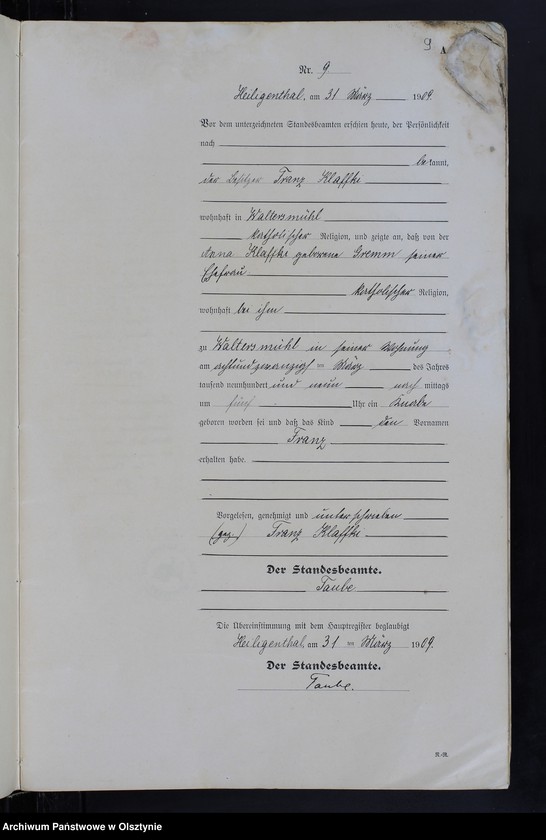 9 A
Nr. 9
Heiligenthal, am 31 März 1909.
Vor dem unterzeichneten Standesbeamten erschien heute, der Persönlichkeit
nach
bekannt,
der Besitzer Franz Klaffki
wohnhaft in Waltersmühl
katholischer Religion, und zeigte an, daß von der
Anna Klaffki geborene Gremm seiner
Ehefrau
katholischer Religion,
wohnhaft bei ihm
zu Waltersmühl in seiner Wohnung
am achtundzwanzigsten März des Jahres
tausend neunhundert und neun nach mittags
um fünf Uhr ein Knabe
geboren worden sei und daß das Kind den Vornamen
Franz
erhalten habe.
Vorgelesen, genehmigt und unterschrieben
(gez.) Franz Klaffki
Der Standesbeamte.
Taube.
Die Übereinstimmung mit dem Hauptregister beglaubigt
Heiligenthal, am 31 ten März 1909.
Der Standesbeamte.
Taube.
Archiwum Państwowe w Olsztynie